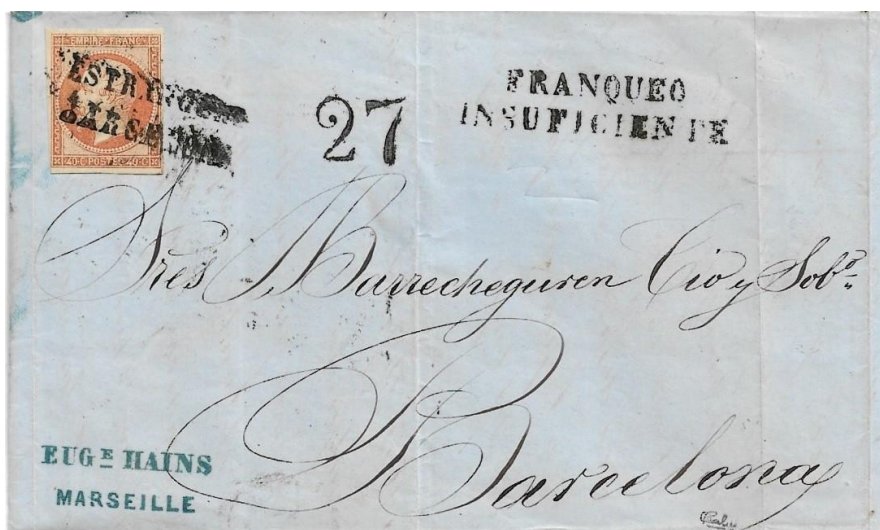 EMPIRE FRANC
ESTR.
BARCELONA
40 C POSTES 40 C
27
FRANQUEO
INSUFICIENTE
Sres Barrecheguren Tio y Sobº
Barcelona
EUGE HAINS
MARSEILLE